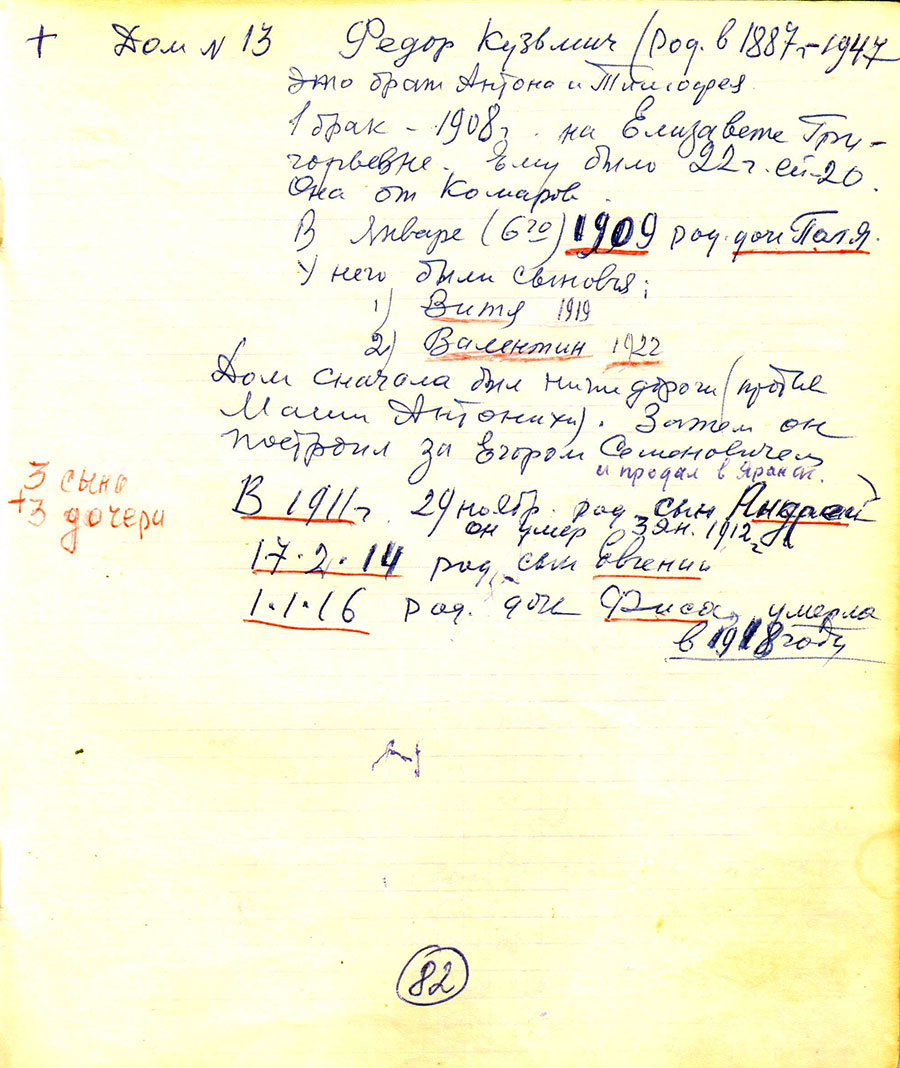 + Дом N 13 Федор Кузьмич (род. в 1887г.-1947
Это брат Антона и Тимофея
1 брак - 1908г. на Елизавете Гри-
горьевне. Ему было 22г. ей-20.
Она от Комаров.
В Январе (6го) 1909 род. дочь Поля.
У него были сыновья:
1) Витя 1919
2) Валентин 1922
Дом сначала был ниже дороги (против
Маши Антонихи). Затем он
построил за Егором Семеновичем)
и продал в Яранск.
3 сына
+3 дочери
В 1911г. 29 ноябр. род. сын Андрей
он умер 3 ян. 1912г.
17.2.14 род. сын Евгений
1.1.16 род. дочь Фиса, умерла
в 1918 году
82